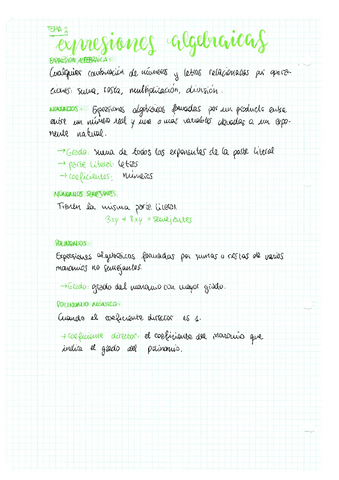 TEMA 2
expresiones algebraicas
EXPRESIÓN ALGEBRAICA:
Cualquier combinación de números y letras relacionadas por opera-
ciones: suma, resta, multiplicación, división.
MONOMIOS: Expresiones algebraicas formadas por un producto entre
entre un número real y una o mas variables elevadas a un expo-
nente natural.
→ Grado: suma de todos los exponentes de la parte literal
→ parte literal: letras
→ coeficientes: números
MONOMIOS SEMEJANTES:
Tienen la misma parte literal
3xy + 8xy = semejantes
POLINOMIOS:
Expresiones algebraicas formadas por sumas o restas de varios
monomios no semejantes.
→ Grado: grado del monomio con mayor grado.
POLINOMIO MÓNICO:
Cuando el coeficiente director es 1.
→ coeficiente director: el coeficiente del monomio que
indica el grado del polinomio.